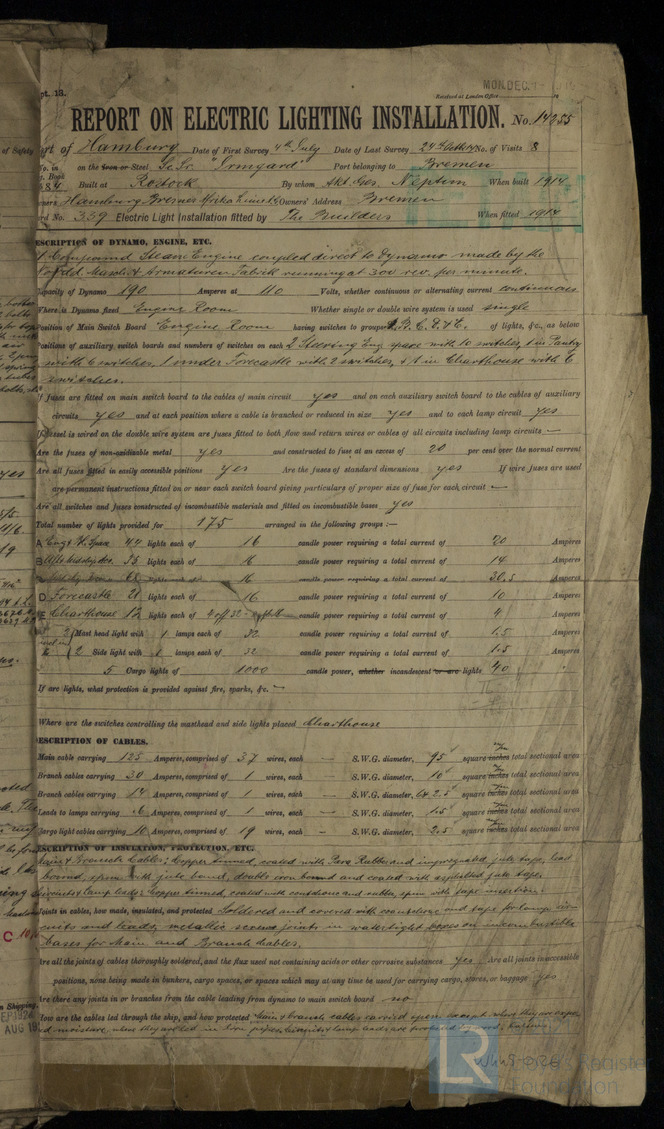 pt. 13.
MON.DEC.
Received at London Office
REPORT ON ELECTRIC LIGHTING INSTALLATION. No. 14255
of Hamburg Date of First Survey 4th July Date of Last Survey 24th No. of Visits 8
No. in on the Iron or Steel "Irmgard" Port belonging to Bremen
Built at Rostock By whom Akt. Ges. Neptun When built 1914
Hamburg Bremer Afrika Linie Owners' Address Bremen
rd No. 339 Electric Light Installation fitted by The Builders When fitted 1914
DESCRIPTION OF DYNAMO, ENGINE, ETC.
Compound Steam Engine coupled direct to Dynamo made by the
Armaturen Fabrik running at 300 rev. per minute.
Capacity of Dynamo 190 Amperes at 110 Volts, whether continuous or alternating current continuous
Where is Dynamo fixed Engine Room Whether single or double wire system is used single
Position of Main Switch Board Engine Room having switches to groups A. B. C. D. & E. of lights, &c., as below
Positions of auxiliary switch boards and numbers of switches on each 2 Steering Eng. space with 10 switches, 1 in Pantry
with 6 switches, 1 under Forecastle with 2 switches, & 1 in Charthouse with 6
switches.
If fuses are fitted on main switch board to the cables of main circuit yes and on each auxiliary switch board to the cables of auxiliary
circuits yes and at each position where a cable is branched or reduced in size yes and to each lamp circuit yes
If vessel is wired on the double wire system are fuses fitted to both flow and return wires or cables of all circuits including lamp circuits —
Are the fuses of non-oxidizable metal yes and constructed to fuse at an excess of 20 per cent over the normal current
Are all fuses fitted in easily accessible positions yes Are the fuses of standard dimensions yes If wire fuses are used
are permanent instructions fitted on or near each switch board giving particulars of proper size of fuse for each circuit —
Are all switches and fuses constructed of incombustible materials and fitted on incombustible bases yes
Total number of lights provided for 175 arranged in the following groups :—
A Eng. & Space 44 lights each of 16 candle power requiring a total current of 20 Amperes
B 35 lights each of 16 candle power requiring a total current of 14 Amperes
lights each of 16 candle power requiring a total current of 30.5 Amperes
D Forecastle 21 lights each of 16 candle power requiring a total current of 10 Amperes
E Charthouse 12 lights each of 4 off 32 candle power requiring a total current of 4 Amperes
2 Mast head light with 1 lamps each of 32 candle power requiring a total current of 1.5 Amperes
2 Side light with 1 lamps each of 32 candle power requiring a total current of 1.5 Amperes
5 Cargo lights of 1000 candle power, whether incandescent or arc lights 40 "
If arc lights, what protection is provided against fire, sparks, &c. —
Where are the switches controlling the masthead and side lights placed Charthouse
DESCRIPTION OF CABLES.
Main cable carrying 125 Amperes, comprised of 37 wires, each — S.W.G. diameter, 95 square inches total sectional area
Branch cables carrying 30 Amperes, comprised of 1 wires, each — S.W.G. diameter, 10 square inches total sectional area
Branch cables carrying 14 Amperes, comprised of 1 wires, each — S.W.G. diameter, 2.5 square inches total sectional area
Leads to lamps carrying .6 Amperes, comprised of 1 wires, each — S.W.G. diameter, 1.5 square inches total sectional area
Cargo light cables carrying 10 Amperes, comprised of 19 wires, each — S.W.G. diameter, 2.5 square inches total sectional area
DESCRIPTION OF INSULATION, PROTECTION, ETC.
Main & Branch Cables: Copper tinned, coated with Para Rubber and impregnated jute tape, lead
bound, spun with jute band, double iron bound and coated with asphalted jute tape.
Circuits & lamp leads: Copper tinned, coated with caoutchouc and rubber, spun with tape
Joints in cables, how made, insulated, and protected Soldered and covered with caoutchouc and tape for lamp cir-
cuits and leads, metallic screw joints in watertight boxes on incombustible
bases for Main and Branch Cables.
Are all the joints of cables thoroughly soldered, and the flux used not containing acids or other corrosive substances yes Are all joints in accessible
positions, none being made in bunkers, cargo spaces, or spaces which may at any time be used for carrying cargo, stores, or baggage yes
Are there any joints in or branches from the cable leading from dynamo to main switch board no
How are the cables led through the ship, and how protected Main & branch cables carried open except where they are expos-
ed moisture, where they are led in iron pipes, circuits & lamp leads are
LR
Lloyd's Register
Foundation